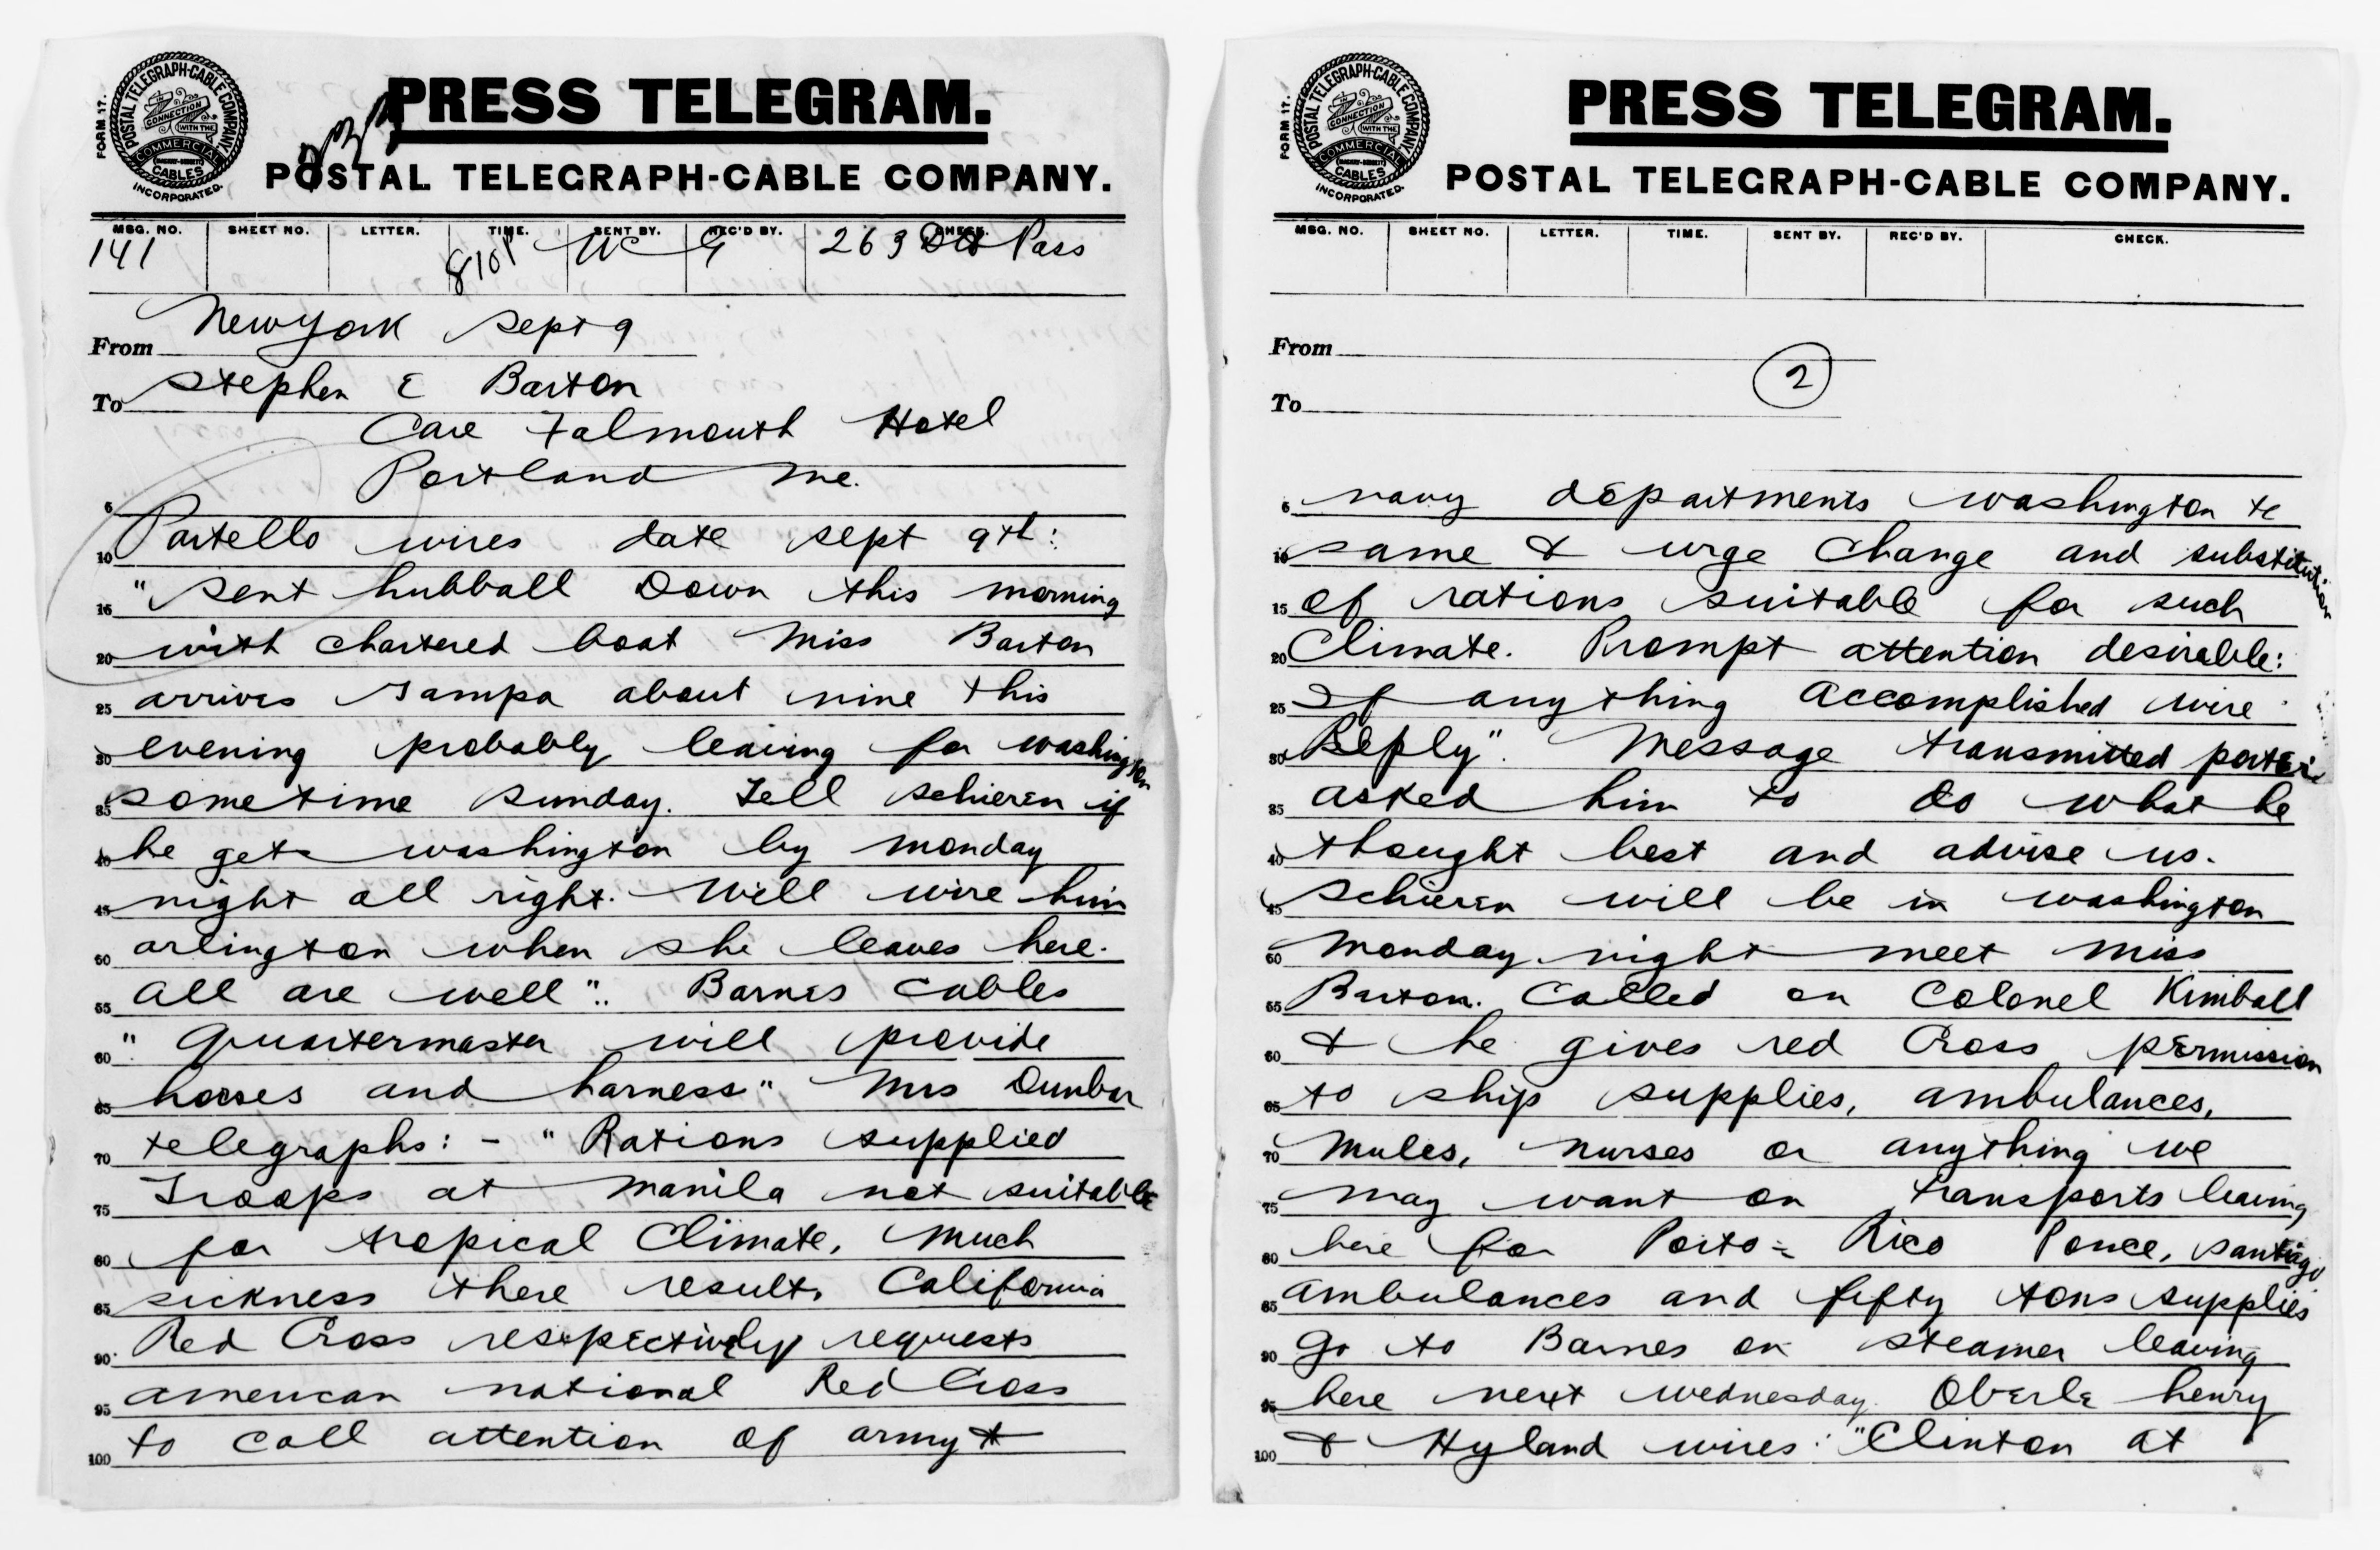 FORM 17.
POSTAL TELEGRAPH-CABLE COMPANY
IN CONNECTION WITH THE
COMMERCIAL
CABLES
INCORPORATED.
PRESS TELEGRAM.
POSTAL TELEGRAPH-CABLE COMPANY.
MSG. NO. SHEET NO. LETTER. TIME. SENT BY. REC'D BY. CHECK.
141 WC G 263 Pass
From New York Sept 9
To Stephen E Barton
Care Falmouth Hotel
Portland Me.
5
10 Partello wires date sept 9th:
15 "Sent hubball Down this morning
20 with chartered boat Miss Barton
25 arrives Tampa about nine this
30 evening probably leaving for washington
35 sometime sunday. Tell schieren if
40 he gets washington by monday
45 night all right. Will wire him
50 arlington when she leaves here.
55 all are well". Barnes cables
60 "Quartermaster will provide
65 horses and harness" Mrs Dunbar
70 telegraphs: - "Rations supplied
75 Troops at Manila not suitable
80 for tropical Climate, Much
85 sickness there result, California
90 Red Cross respectively requests
95 american national Red Cross
100 to call attention of army &
FORM 17.
POSTAL TELEGRAPH-CABLE COMPANY
IN CONNECTION WITH THE
COMMERCIAL
CABLES
INCORPORATED.
PRESS TELEGRAM.
POSTAL TELEGRAPH-CABLE COMPANY.
MSG. NO. SHEET NO. LETTER. TIME. SENT BY. REC'D BY. CHECK.
From
2
To
5 navy departments washington to
10 same & urge Change and substitution
15 of rations suitable for such
20 Climate. Prompt attention desirable:
25 If anything accomplished wire
30 Reply". Message transmitted porter
35 asked him to do what he
40 thought best and advise us.
45 Schieren will be in washington
50 Monday night meet Miss
55 Barton. Called on Colonel Kimball
60 & he gives red Cross permission
65 to ship supplies, ambulances,
70 Mules, nurses or anything we
75 may want on transports leaving
80 here for Porto = Rico Ponce, santiago
85 ambulances and fifty tons supplies
90 go to Barnes on steamer leaving
95 here next wednesday. Oberle henry
100 & Hyland wires: "Clinton at